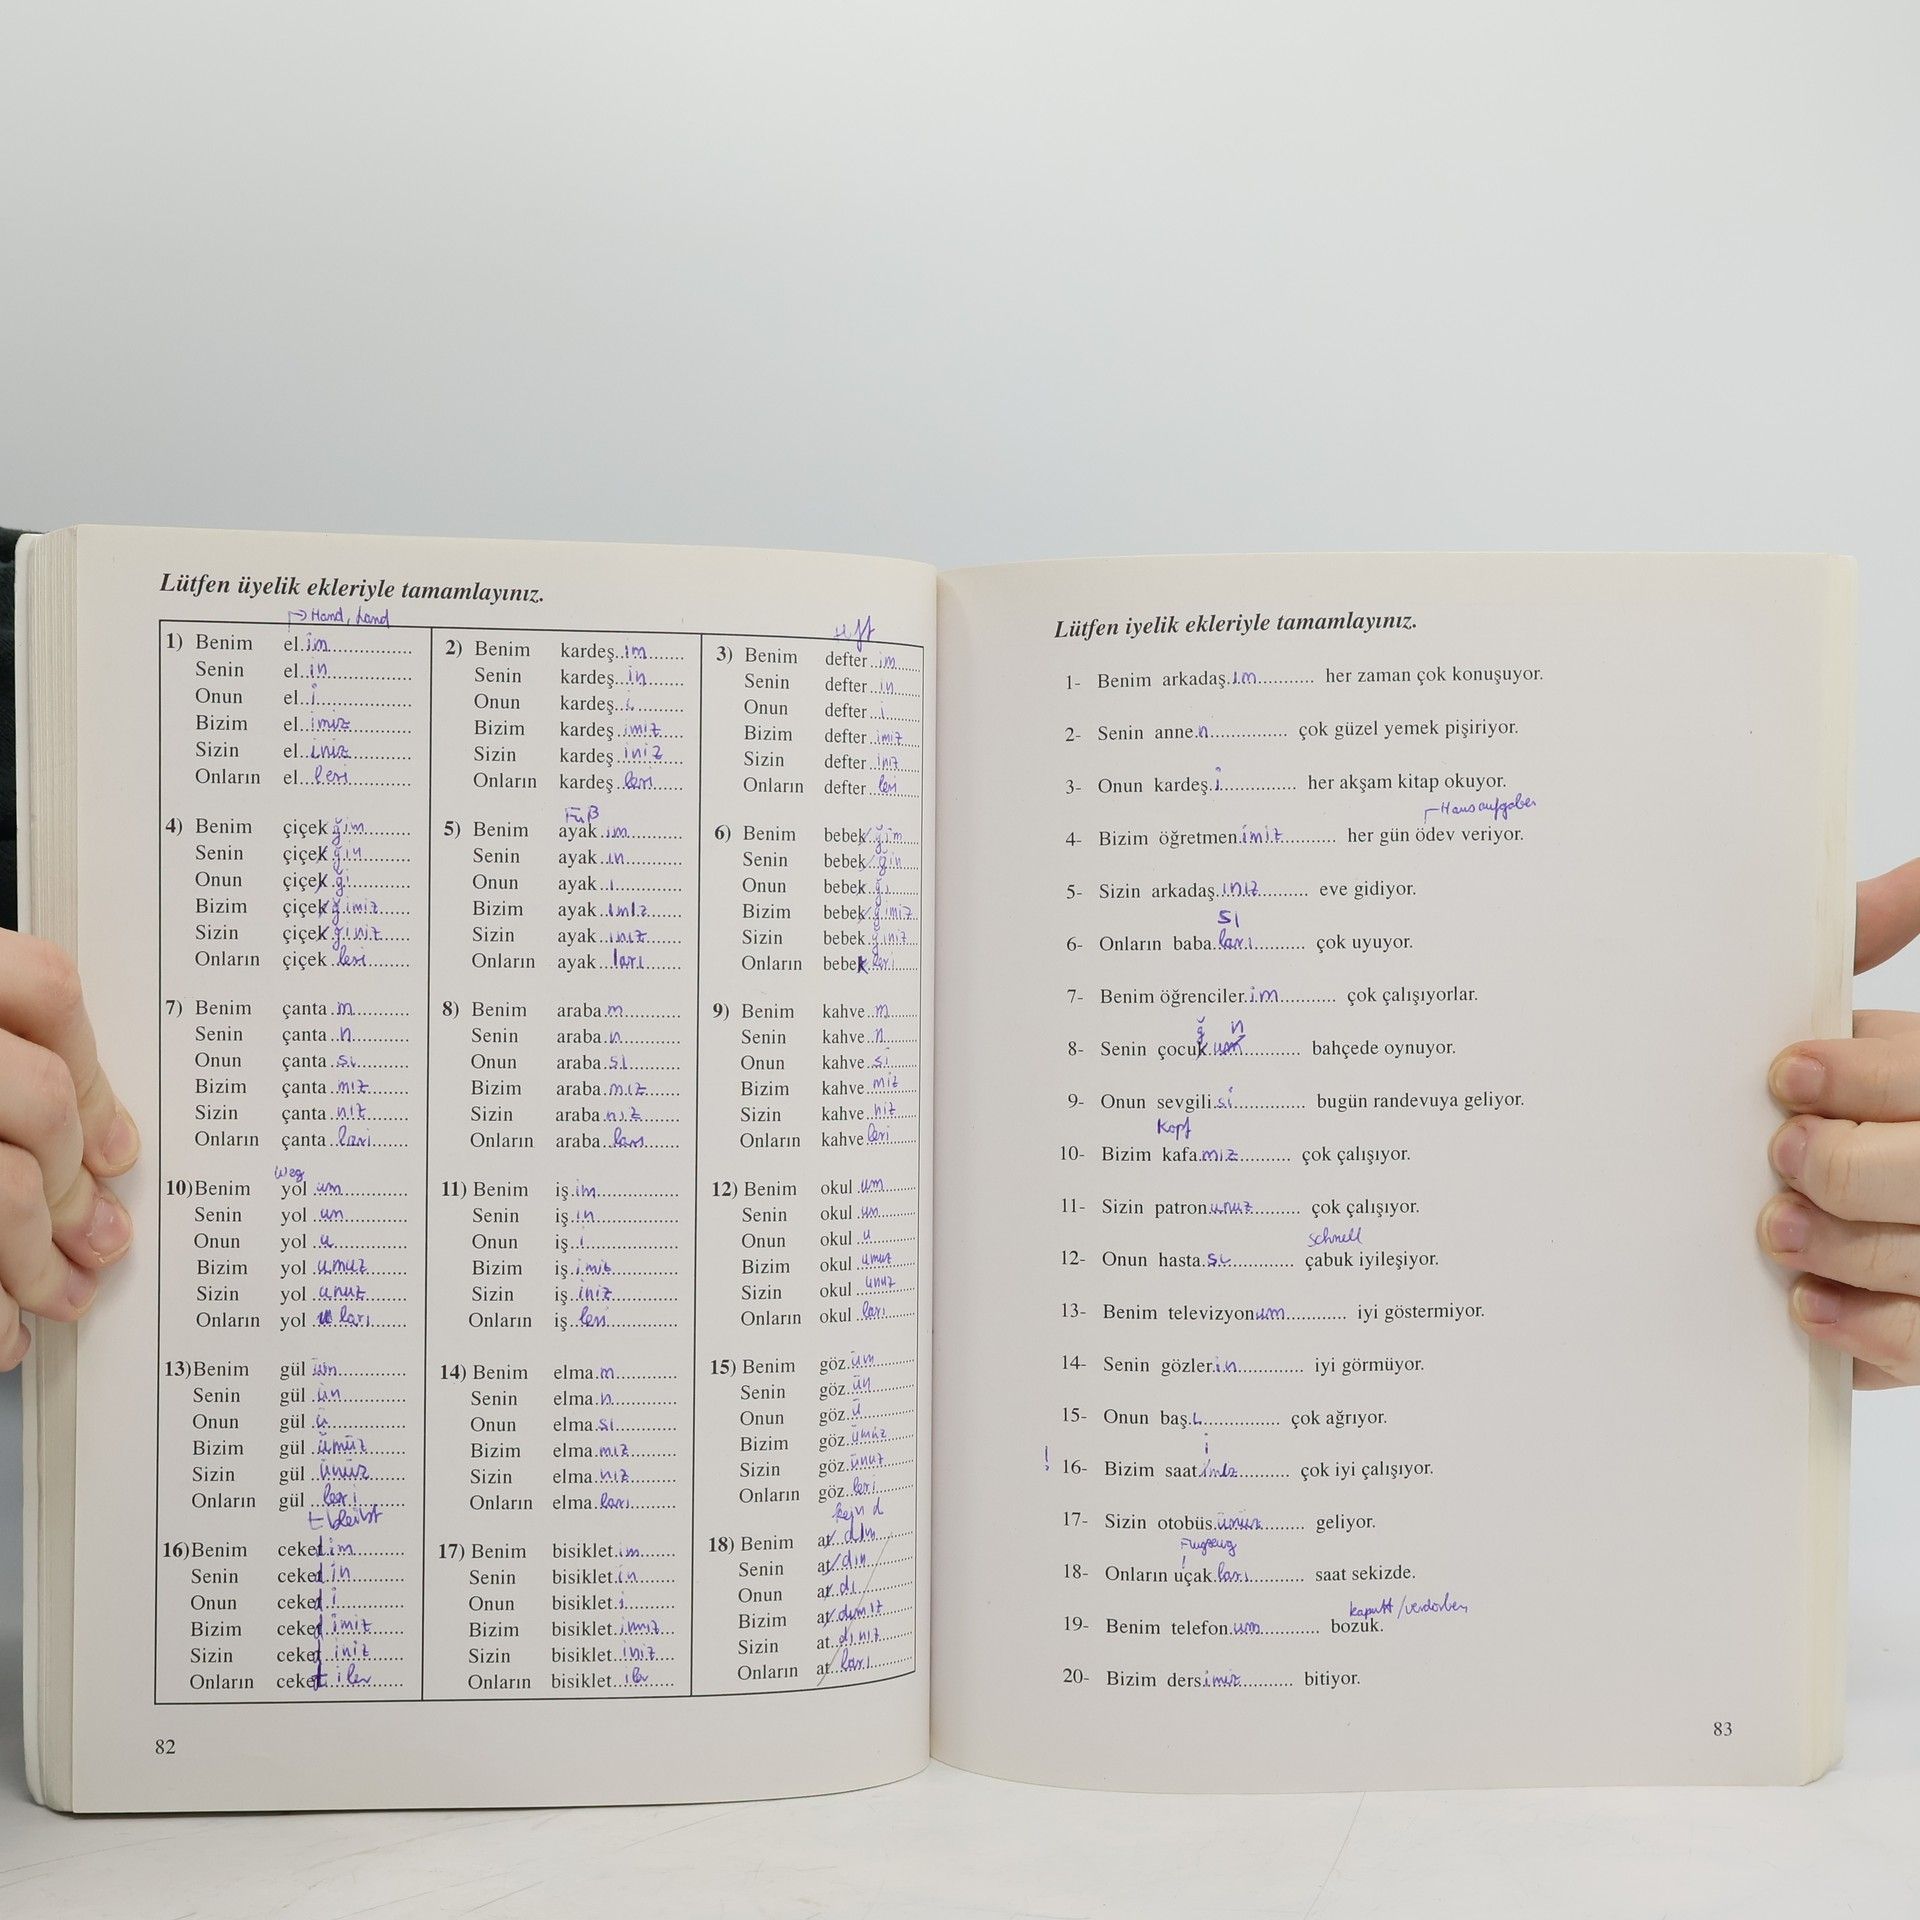 Lütfen üyelik ekleriyle tamamlayınız.
→ Hand, Land
1) Benim el im
Senin el in
Onun el i
Bizim el imiz
Sizin el iniz
Onların el leri
2) Benim kardeş im
Senin kardeş in
Onun kardeş i
Bizim kardeş imiz
Sizin kardeş iniz
Onların kardeş leri
3) Benim defter im
Senin defter in
Onun defter i
Bizim defter imiz
Sizin defter iniz
Onların defter leri
4) Benim çiçek ğim
Senin çiçek ğin
Onun çiçek ği
Bizim çiçek ğimiz
Sizin çiçek ğiniz
Onların çiçek leri
Fuß
5) Benim ayak ım
Senin ayak ın
Onun ayak ı
Bizim ayak ımız
Sizin ayak ınız
Onların ayak ları
6) Benim bebek ğim
Senin bebek ğin
Onun bebek ği
Bizim bebek ğimiz
Sizin bebek ğiniz
Onların bebek leri
7) Benim çanta m
Senin çanta n
Onun çanta sı
Bizim çanta mız
Sizin çanta nız
Onların çanta ları
8) Benim araba m
Senin araba n
Onun araba sı
Bizim araba mız
Sizin araba nız
Onların araba ları
9) Benim kahve m
Senin kahve n
Onun kahve si
Bizim kahve miz
Sizin kahve niz
Onların kahve leri
Weg
10) Benim yol um
Senin yol un
Onun yol u
Bizim yol umuz
Sizin yol unuz
Onların yol ları
11) Benim iş im
Senin iş in
Onun iş i
Bizim iş imiz
Sizin iş iniz
Onların iş leri
12) Benim okul um
Senin okul un
Onun okul u
Bizim okul umuz
Sizin okul unuz
Onların okul ları
13) Benim gül üm
Senin gül ün
Onun gül ü
Bizim gül ümüz
Sizin gül ünüz
Onların gül leri
14) Benim elma m
Senin elma n
Onun elma sı
Bizim elma mız
Sizin elma nız
Onların elma ları
15) Benim göz üm
Senin göz ün
Onun göz ü
Bizim göz ümüz
Sizin göz ünüz
Onların göz leri
t bleibt
16) Benim ceket im
Senin ceket in
Onun ceket i
Bizim ceket imiz
Sizin ceket iniz
Onların ceket iler
17) Benim bisiklet im
Senin bisiklet in
Onun bisiklet i
Bizim bisiklet imiz
Sizin bisiklet iniz
Onların bisiklet iler
kein d
18) Benim at dım
Senin at dın
Onun at dı
Bizim at dımız
Sizin at dınız
Onların at ları
82
Lütfen iyelik ekleriyle tamamlayınız.
1- Benim arkadaş ım her zaman çok konuşuyor.
2- Senin anne n çok güzel yemek pişiriyor.
3- Onun kardeş i her akşam kitap okuyor.
Hausaufgaben
4- Bizim öğretmen imiz her gün ödev veriyor.
5- Sizin arkadaş ınız eve gidiyor.
sı
6- Onların baba ları çok uyuyor.
7- Benim öğrenciler im çok çalışıyorlar.
ğ n
8- Senin çocuk um bahçede oynuyor.
9- Onun sevgili si bugün randevuya geliyor.
Kopf
10- Bizim kafa mız çok çalışıyor.
11- Sizin patron unuz çok çalışıyor.
schnell
12- Onun hasta sı çabuk iyileşiyor.
13- Benim televizyon um iyi göstermiyor.
14- Senin gözler in iyi görmüyor.
15- Onun baş ı çok ağrıyor.
i
! 16- Bizim saat imiz çok iyi çalışıyor.
17- Sizin otobüs ünüz geliyor.
Flugzeug
18- Onların uçak ları saat sekizde.
kaputt/verdorben
19- Benim telefon um bozuk.
20- Bizim ders imiz bitiyor.
83